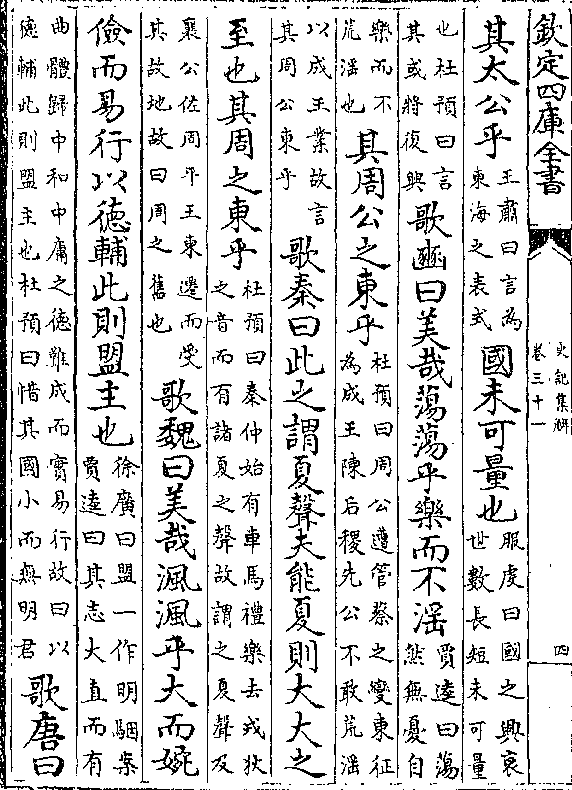 欽定四庫全書
史記集解
卷三十一
四
其太公乎王肅曰言為東海之表式國未可量也服虔曰國之興衰世數長短未可量
也杜預曰言其或將復興歌豳曰美哉蕩蕩乎樂而不滛賈逵曰蕩然無憂自
樂而不荒滛也其周公之東乎杜預曰周公遭管蔡之變東征為成王陳后稷先公不敢荒滛
以成王業故言其周公東乎歌秦曰此之謂夏聲夫能夏則大大之
至也其周之東乎杜預曰秦仲始有車馬禮樂去戎狄之音而有諸夏之聲故謂之夏聲及
襄公佐周平王東遷而受其故地故曰周之舊也歌魏曰美哉渢渢乎大而婉
儉而易行以德輔此則盟主也徐廣曰盟一作明駰案賈逵曰其志大直而有
曲體歸中和中庸之德難成而實易行故曰以德輔此則盟主也杜預曰惜其國小而無明君歌唐曰